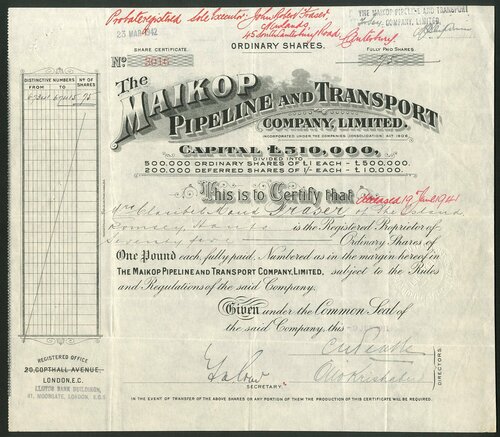 Probate registered Sole Executor: John Robert Fraser
Newlands
45 South Canterbury Road,
Canterbury
23 MAR 1942
THE MAIKOP PIPELINE AND TRANSPORT
COMPANY, LIMITED.
SHARE CERTIFICATE.
ORDINARY SHARES.
FULLY PAID SHARES
No
95
The
MAIKOP
PIPELINE AND TRANSPORT
COMPANY, LIMITED.
INCORPORATED UNDER THE COMPANIES (CONSOLIDATION) ACT 1908.
CAPITAL £510,000,
DIVIDED INTO
500,000 ORDINARY SHARES OF £1 EACH - £500,000.
200,000 DEFERRED SHARES OF 1/- EACH - £10,000.
DISTINCTIVE NUMBERS
No OF SHARES
FROM TO
95
This is to Certify that
deceased 19 June 1941
Fraser of The Island
Romsey Hants
is the Registered Proprietor of
Seventy five
Ordinary Shares of
One Pound each, fully paid, Numbered as in the margin hereof in
THE MAIKOP PIPELINE AND TRANSPORT COMPANY, LIMITED, subject to the Rules
and Regulations of the said Company.
Given under the Common Seal of
the said Company, this
DIRECTORS
SECRETARY.
REGISTERED OFFICE
20, COPTHALL AVENUE,
LONDON. E.C.
LLOYDS BANK BUILDINGS,
51, MOORGATE, LONDON. E.C.2
IN THE EVENT OF TRANSFER OF THE ABOVE SHARES OR ANY PORTION OF THEM THE PRODUCTION OF THIS CERTIFICATE WILL BE REQUIRED.